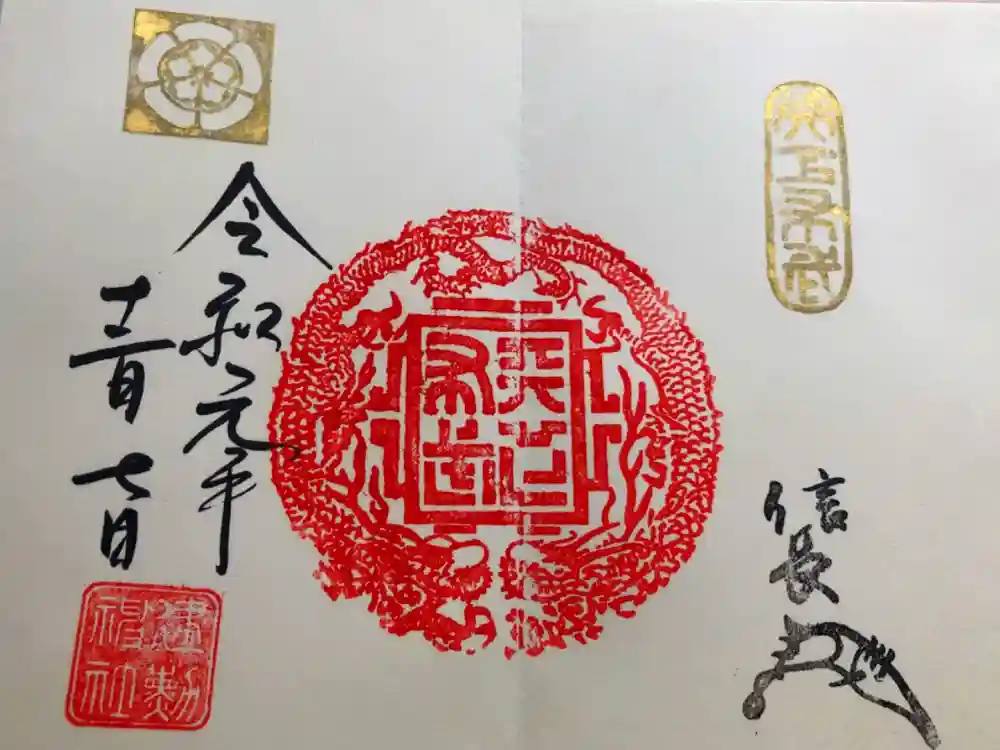 天下布武
信長
天下布武
令和元年
十二月七日
建勲神社